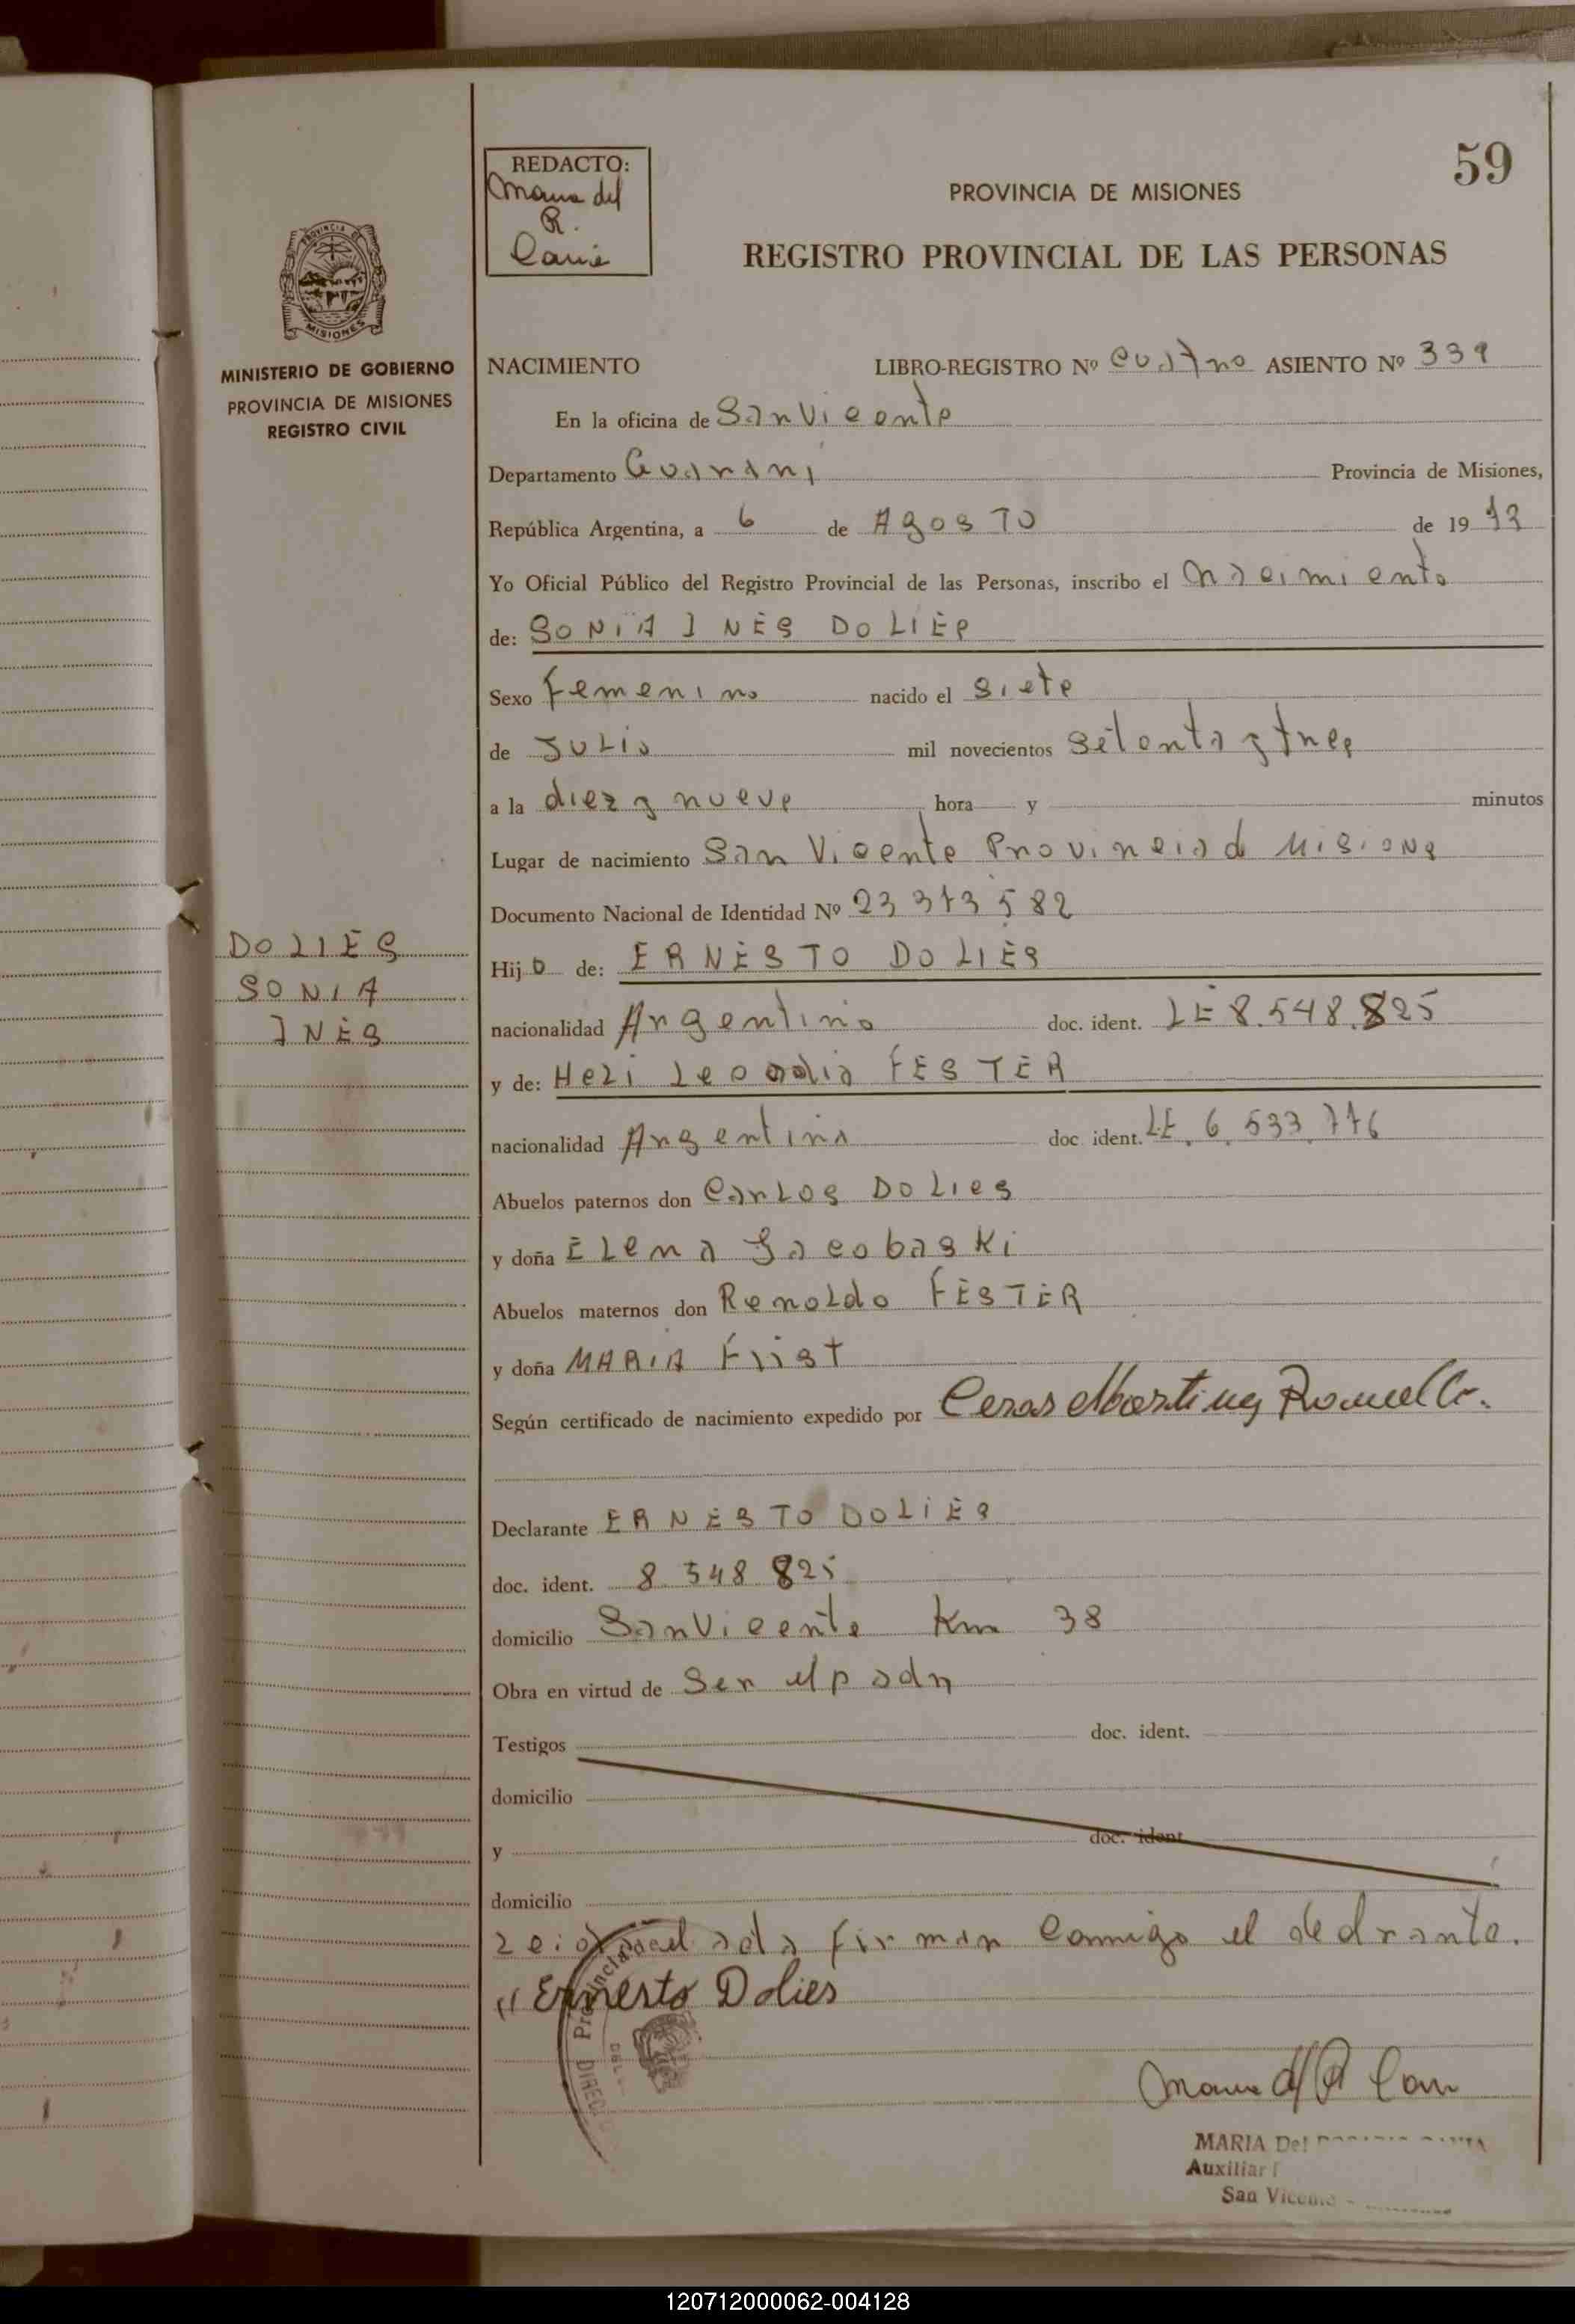 59
REDACTO:
Maria del
R.
PROVINCIA DE MISIONES
REGISTRO PROVINCIAL DE LAS PERSONAS
PROVINCIA DE
MISIONES
MINISTERIO DE GOBIERNO
PROVINCIA DE MISIONES
REGISTRO CIVIL
DOLIES
SONIA
INES
NACIMIENTO LIBRO-REGISTRO Nº Cuatro ASIENTO Nº 339
En la oficina de San Vicente
Departamento Guarani Provincia de Misiones,
República Argentina, a 6 de Agosto de 19 73
Yo Oficial Público del Registro Provincial de las Personas, inscribo el Nacimiento
de: SONIA INES DOLIES
Sexo femenino nacido el siete
de Julio mil novecientos setenta y tres
a la diez y nueve hora y minutos
Lugar de nacimiento San Vicente Provincia de Misiones
Documento Nacional de Identidad Nº 23 373 582
Hijo de: ERNESTO DOLIES
nacionalidad Argentino doc. ident. LE 8.548.825
y de: Heli FESTER
nacionalidad Argentina doc. ident. LE. 6.533.776
Abuelos paternos don Carlos Dolies
y doña Elena Jacobaski
Abuelos maternos don Renoldo FESTER
y doña MARIA
Según certificado de nacimiento expedido por
Declarante ERNESTO DOLIES
doc. ident. 8 548 825
domicilio San Vicente Km 38
Obra en virtud de Ser el padre
Testigos doc. ident.
domicilio
y doc. ident.
domicilio
acta firman conmigo el declarante.
" Ernesto Dolies
Provincia
DIREC
Maria d R
MARIA Del
Auxiliar
San Vicente
120712000062-004128